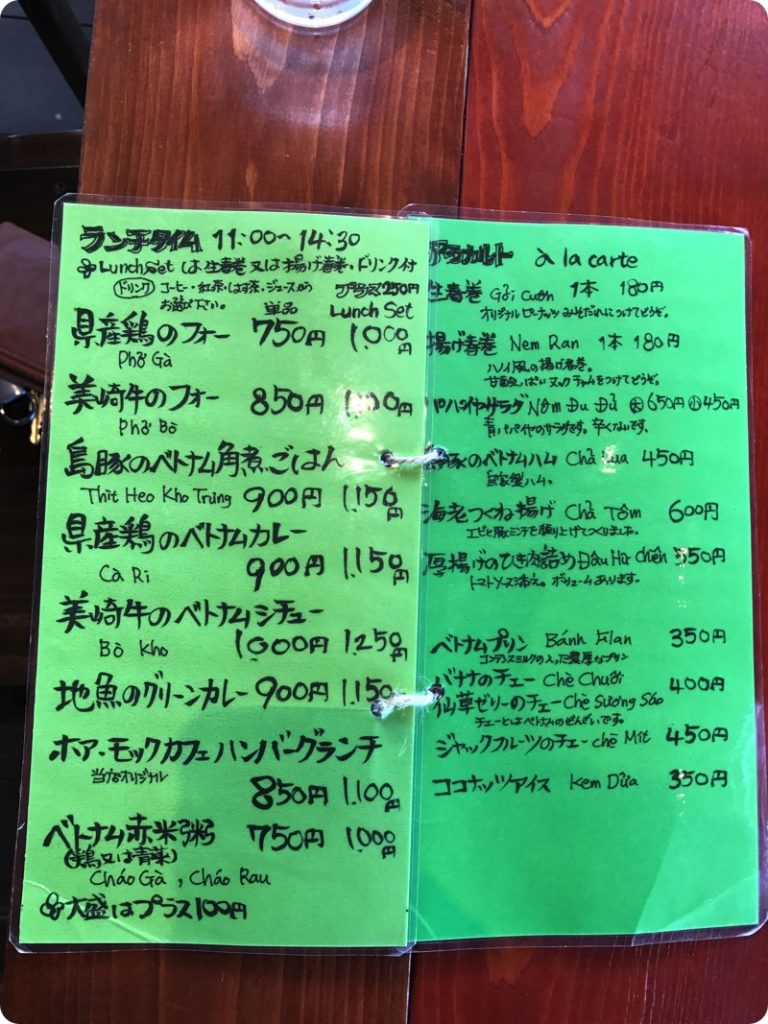 ランチタイム 11:00〜14:30
Lunch Set は生春巻又は揚げ春巻・ドリンク付
ドリンク コーヒー・紅茶・はす茶・ジュースから プラス250円
お選び下さい。 単品 Lunch Set
県産鶏のフォー 750円 1.000円
Phở Gà
美崎牛のフォー 850円 1.100円
Phở Bò
島豚のベトナム角煮ごはん
Thịt Heo Kho Trứng 900円 1.150円
県産鶏のベトナムカレー
Cà Ri 900円 1.150円
美崎牛のベトナムシチュー
Bò Kho 1.000円 1.250円
地魚のグリーンカレー 900円 1.150円
ホア・モックカフェ ハンバーグランチ
当店オリジナル
850円 1.100円
ベトナム赤米粥 750円 1.000円
(鶏又は青菜)
Cháo Gà , Cháo Rau
大盛はプラス100円
アラカルト à la carte
生春巻 Gỏi Cuốn 1本 180円
オリジナルピーナッツみそだれにつけてどうぞ。
揚げ春巻 Nem Ran 1本 180円
ハノイ風の揚げ春巻。
甘酸っぱいヌックチャムをつけてどうぞ。
パパイヤサラダ Nộm Đu Đủ 大650円 小450円
青パパイヤのサラダです。辛くないです。
豚のベトナムハム Chả Lua 450円
自家製ハム。
海老つくね揚げ Chả Tôm 600円
エビと豚ミンチを練り上げてつくりました。
厚揚げのひき肉詰め Đâu Hủ Chiên 550円
トマトソース添え。ボリュームあります。
ベトナムプリン Bánh Flan 350円
コンデンスミルクの入った濃厚なプリン
バナナのチェー Chè Chuối 400円
仙草ゼリーのチェー Chè Sương Sáo
チェーとはベトナムのぜんざいです。
ジャックフルーツのチェー chè Mít 450円
ココナッツアイス Kem Dừa 350円